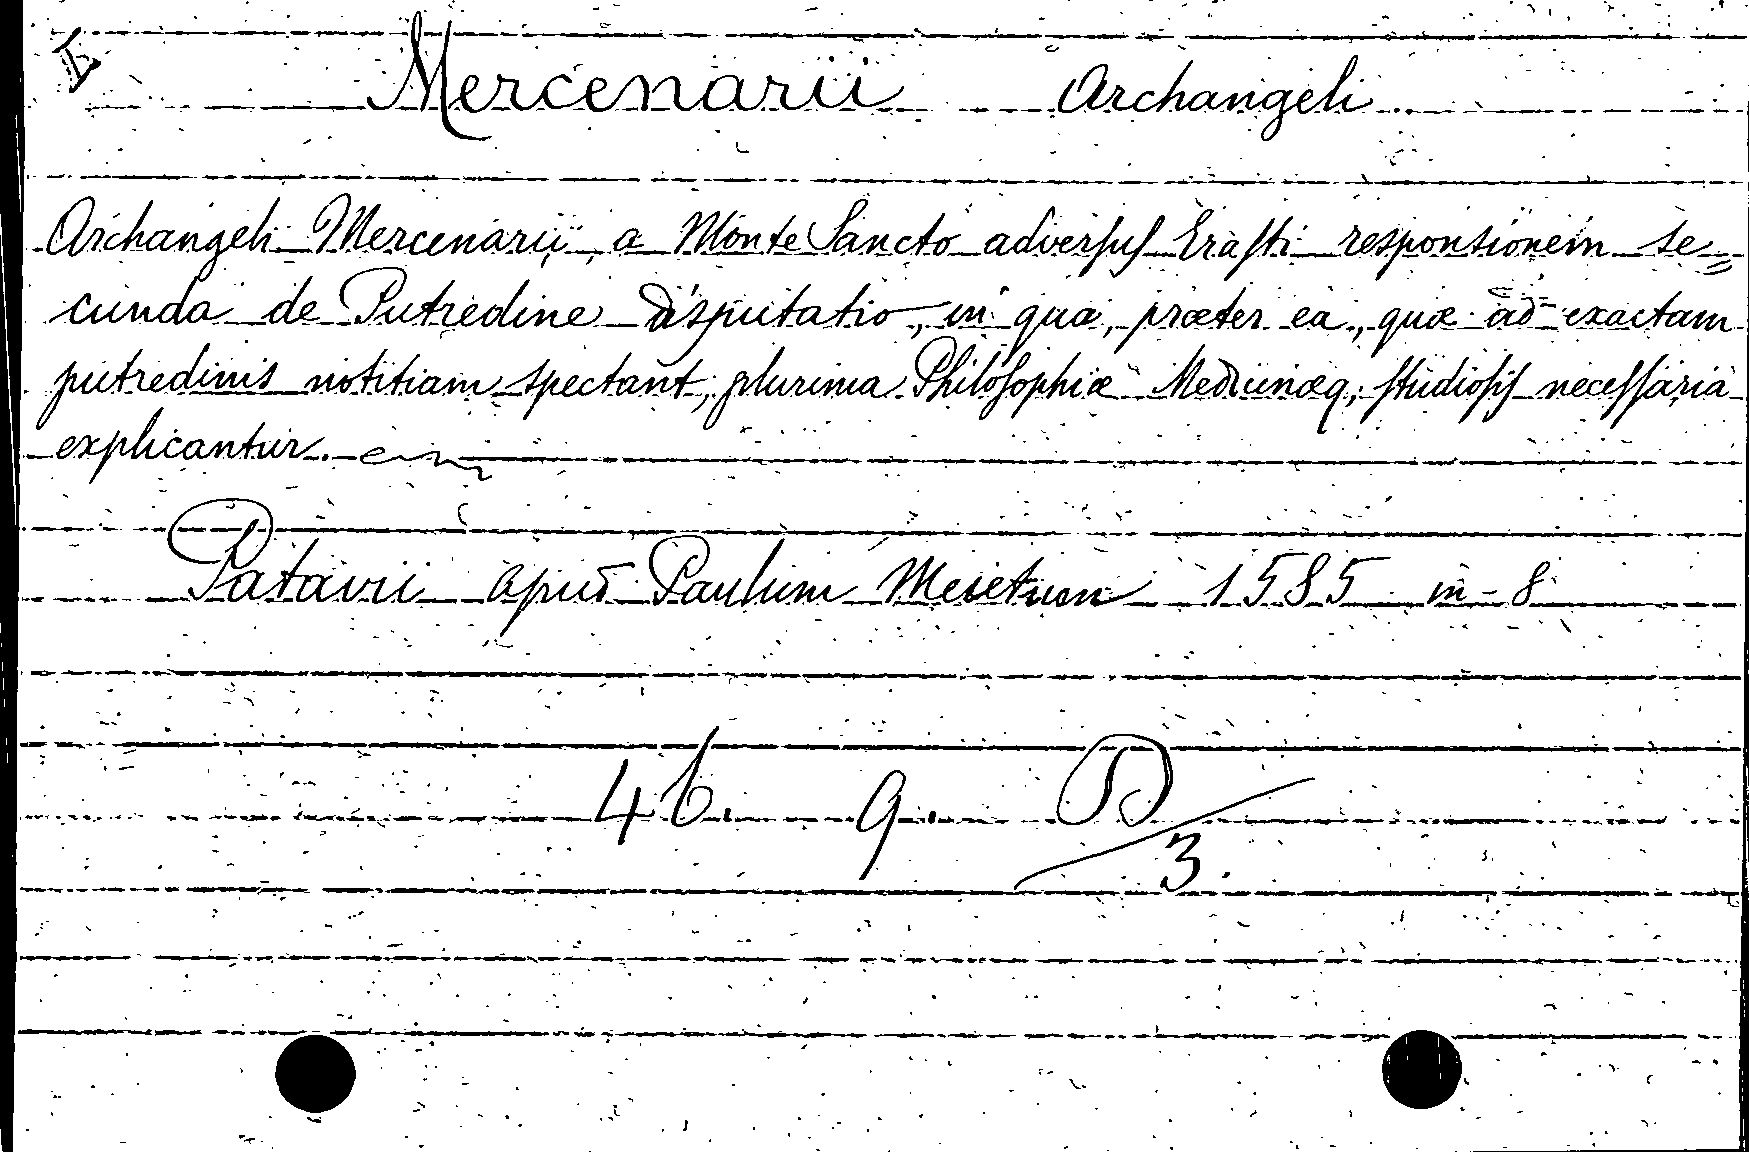 Mercenarii Archangeli
Archangeli Mercenarii a Monte Sancto adversus Erasti responsionem se=
cunda de Putredine Disputatio, in qua, præter ea, quæ ad exactam
putredinis notitiam spectant, plurima Philosophiæ Medicinæq; studiosis necessaria
explicantur.
Patavii apud Paulum Meietum 1585 in-8
46. 9. D/3.